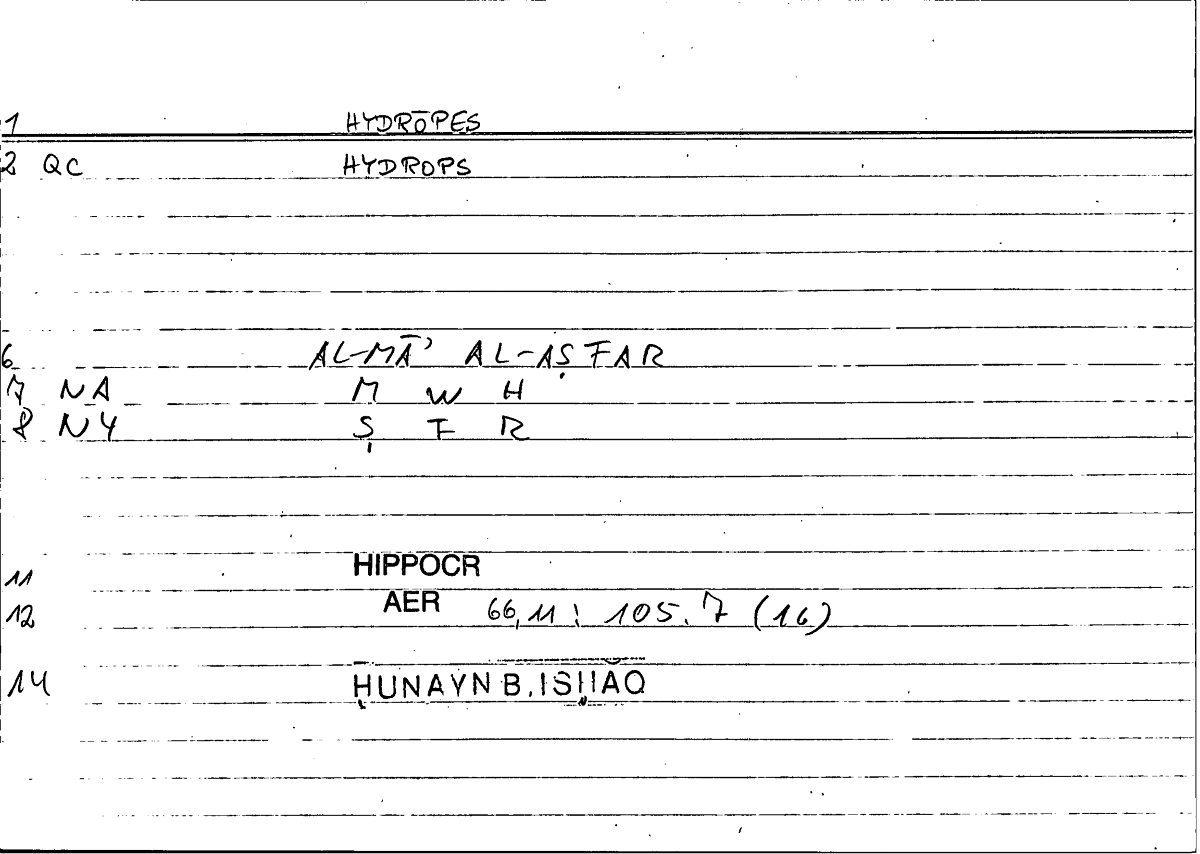 1 HYDRŌPES
2 QC HYDROPS
6 AL-MĀʾ AL-AṢFAR
7 NA M W H
8 NY Ṣ F R
11 HIPPOCR
12 AER 66,11 : 105.7 (16)
14 ḤUNAYN B. ISḤĀQ